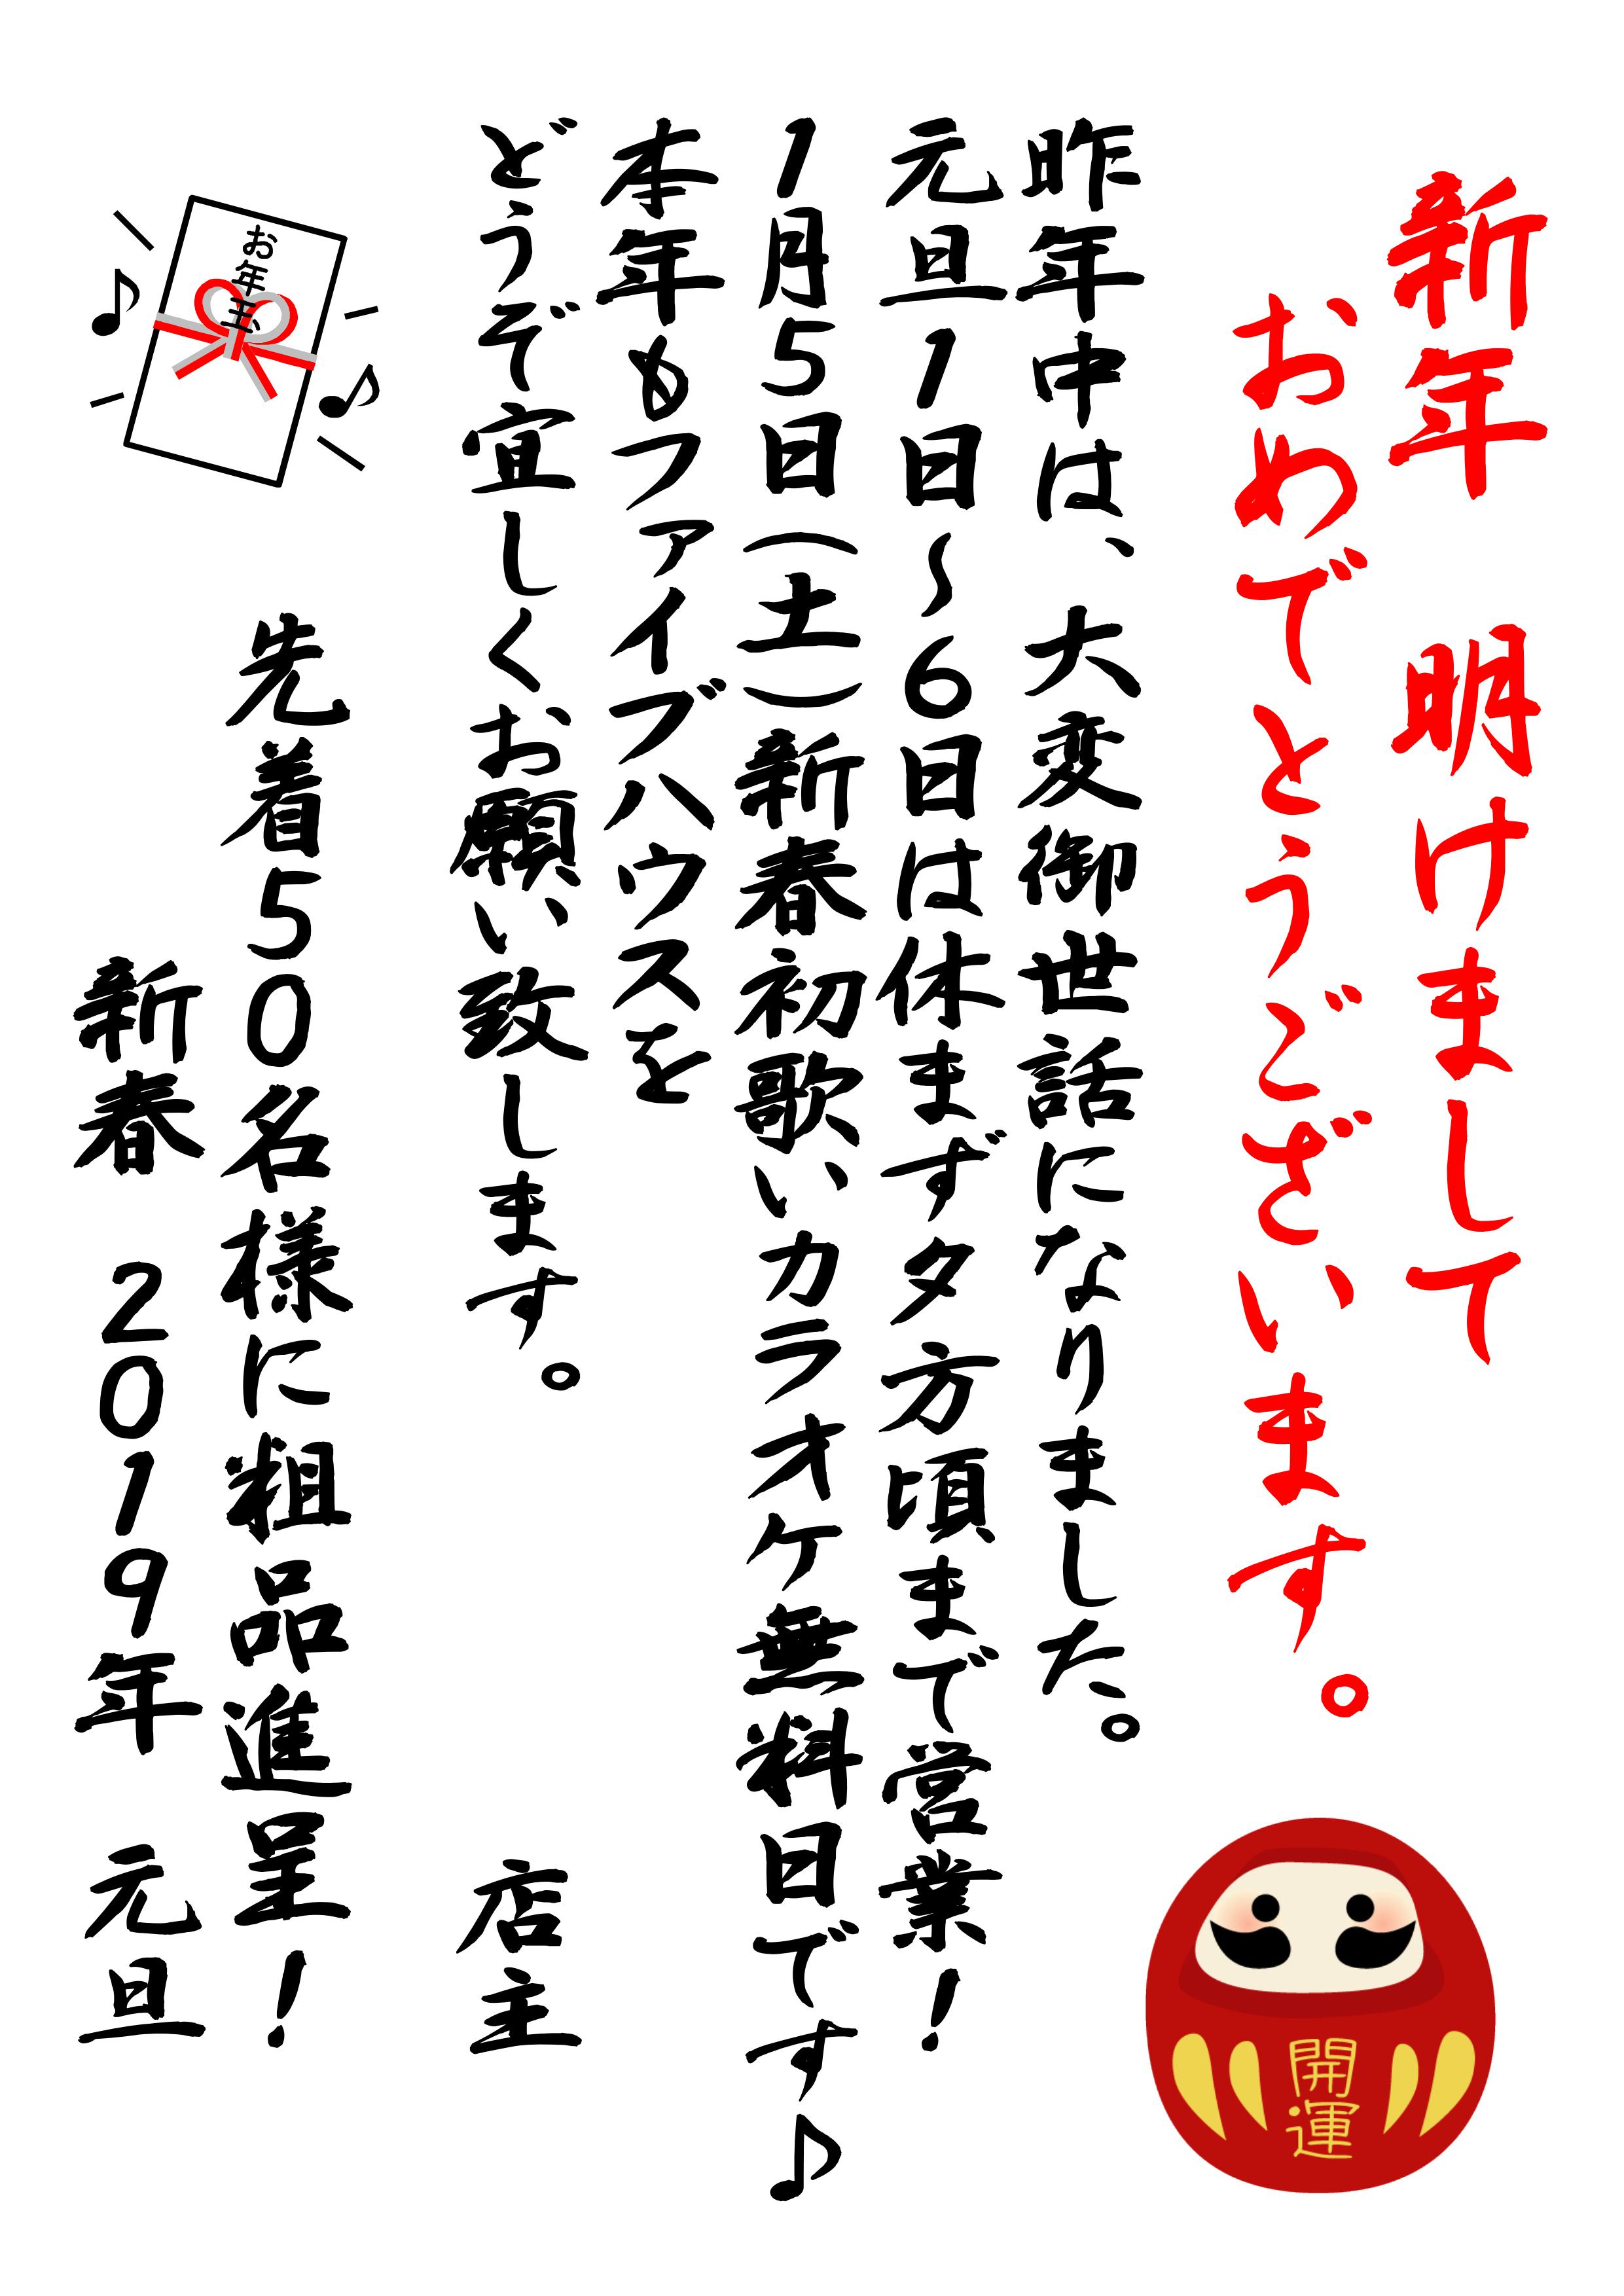 新年　明けまして
おめでとうございます。
昨年中は、大変御世話になりました。
元旦1日～6日は休まず夕方頃まで営業！
1月5日（土）新春初歌いカラオケ無料日です♪
本年もファイブハウスを
どうぞ宜しくお願い致します。　店主
先着50名様に粗品進呈！
新春　2019年　元旦
お年玉
開運